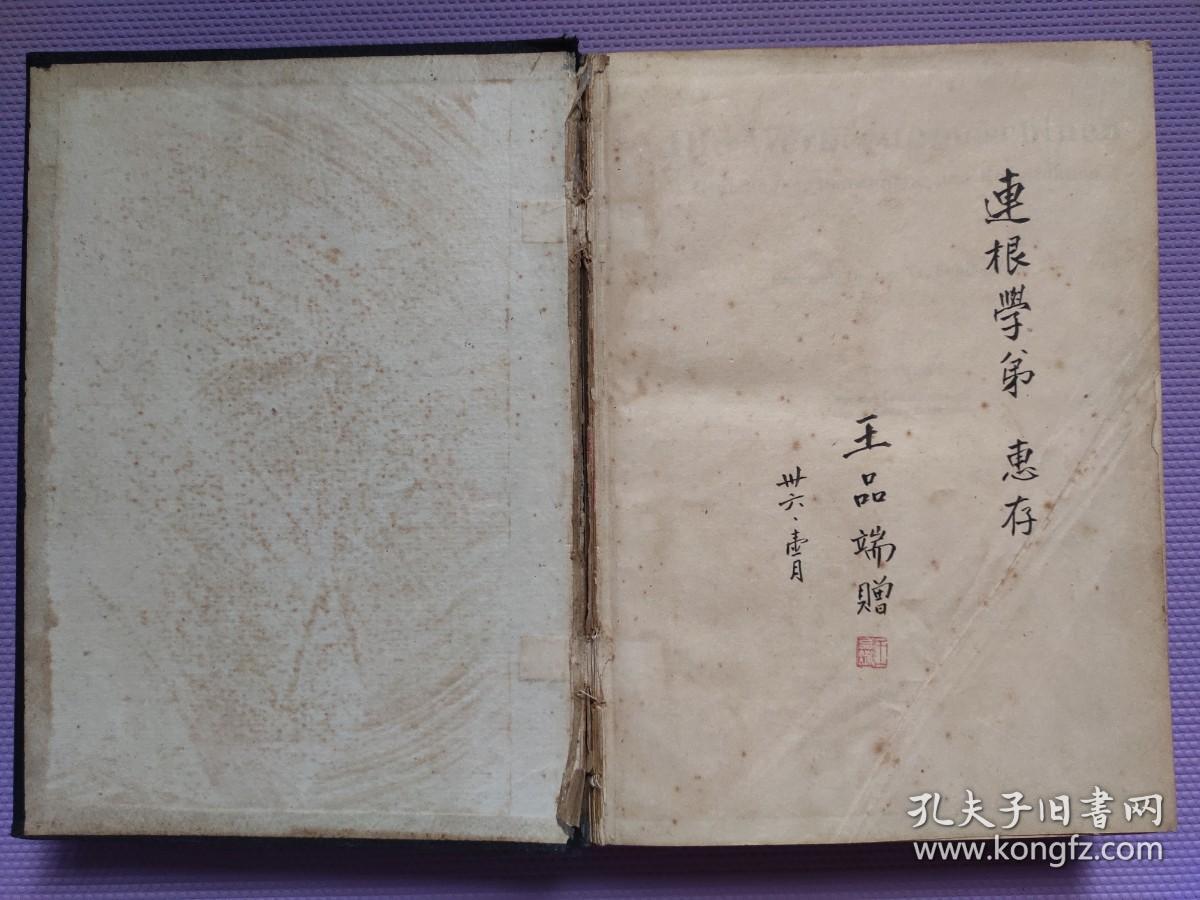 連根學弟 惠存
王品端贈
卅六、壹月
孔夫子旧書网
www.kongfz.com